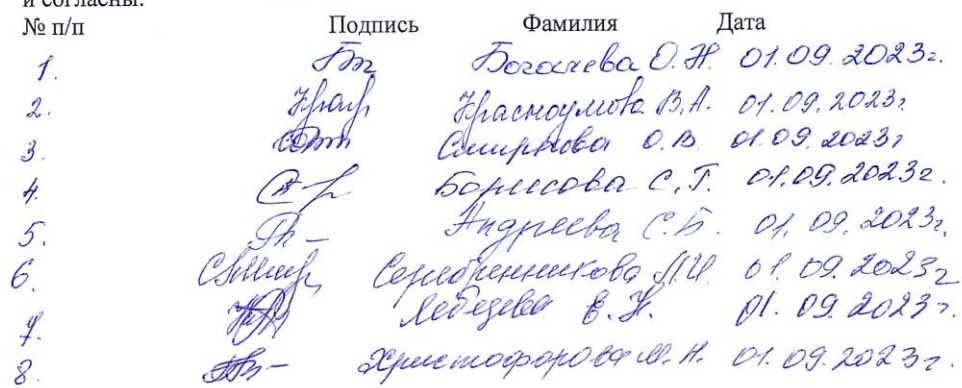 и согласны.
№ п/п Подпись Фамилия Дата
1. Богачева О.Н. 01.09.2023г.
2. Красноумова В.А. 01.09.2023г
3. Смирнова О.В. 01.09.2023г
4. Борисова С.Г. 01.09.2023г.
5. Андреева С.Б. 01.09.2023г.
6. Серебренникова Л.И. 01.09.2023г
7. Лебедева Е.Н. 01.09.2023г.
8. Христофорова М.Н. 01.09.2023г.